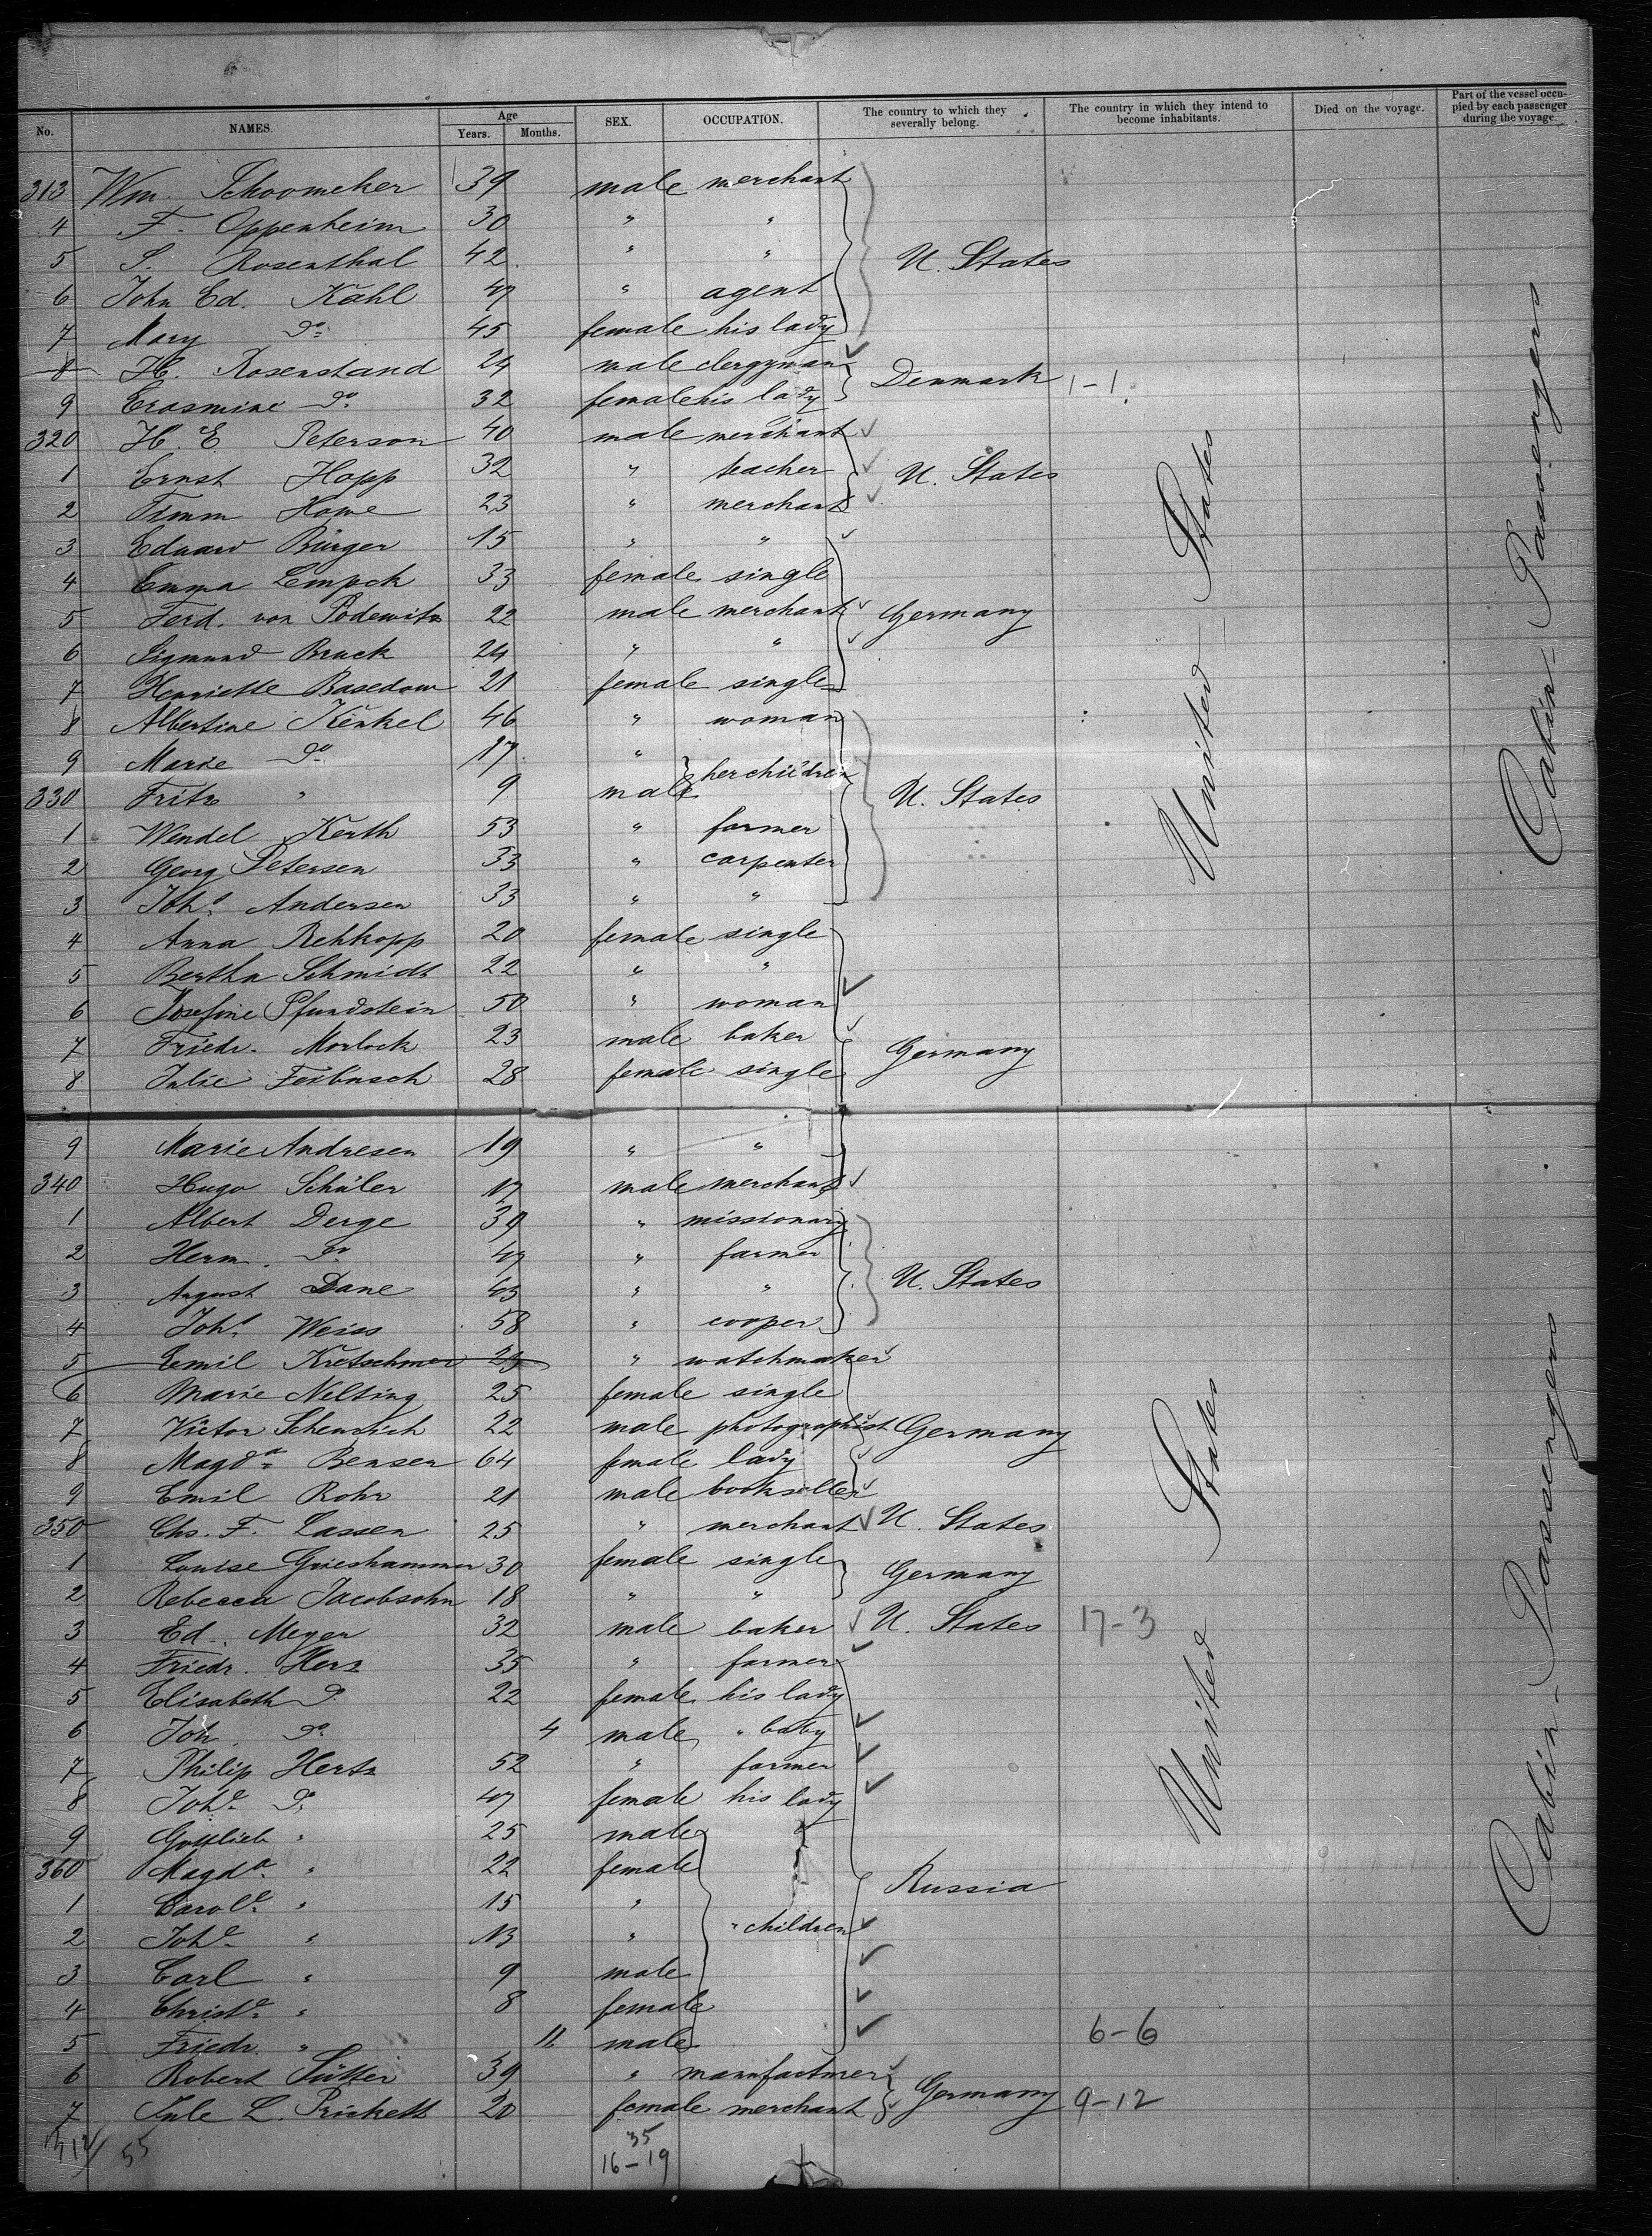 No. NAMES. Age Years. Months. SEX. OCCUPATION. The country to which they severally belong. The country in which they intend to become inhabitants. Died on the voyage. Part of the vessel occupied by each passenger during the voyage.
313 Wm. Schoomeker 39 male merchant
4 F. Oppenheim 30 " "
5 S. Rosenthal 42 " " U. States
6 John Ed. Kahl 47 " agent
7 Mary Do 45 female his lady
8 H. Rosenstand 24 male clergyman
9 Erasmine Do 32 female his lady Denmark 1-1
320 H. E. Peterson 40 male merchant
1 Ernst Hopp 32 " teacher U. States
2 Timm Howe 23 " merchant
3 Eduard Bürger 15 " "
4 Emma Lempck 33 female single
5 Ferd. von Podewitz 22 male merchant Germany
6 Sigmund Bruck 24 " "
7 Henriette Basedow 21 female single
8 Albertine Kenkel 46 " woman
9 Marie Do 17 " her children
330 Fritz " 9 male U. States
1 Wendel Kerth 53 " farmer
2 Georg Petersen 33 " carpenter
3 Joh. Andersen 33 " "
4 Anna Rehkopp 20 female single
5 Bertha Schmidt 22 " "
6 Josefine Pfundstein 50 " woman
7 Friedr. Morlock 23 male baker Germany
8 Julie Feibusch 28 female single
United States
Cabin-Passengers
9 Marie Andresen 19 " "
340 Hugo Schüler 17 male merchant
1 Albert Derge 39 " missionary
2 Herm. Do 47 " farmer
3 August Dane 43 " " U. States
4 Joh. Weiss 58 " cooper
5 Emil Kretschmer " watchmaker
6 Marie Nelting 25 female single
7 Victor Scheurich 22 male photographist Germany
8 Magda Bensen 64 female lady
9 Emil Rohr 21 male bookseller
350 Chs. F. Lassen 25 " merchant U. States
1 Louise Grieshammer 30 female single Germany
2 Rebecca Jacobsohn 18 " "
3 Ed. Meyer 32 male baker U. States 17-3
4 Friedr. Herz 35 " farmer
5 Elisabeth Do 22 female his lady
6 Joh. Do 4 male " baby
7 Philip Hertz 52 " farmer
8 Johe Do 47 female his lady
9 Gottlieb " 25 male
360 Magda " 22 female Russia
1 Carole " 15 "
2 Johe " 13 " " children
3 Carl " 9 male
4 Christe " 8 female
5 Friedr. " 11 male 6-6
6 Robert Sütter 39 " manufacturer
7 Jule L. Prickett 20 female merchant Germany 9-12
United States
Cabin-Passengers
55 35
16-19